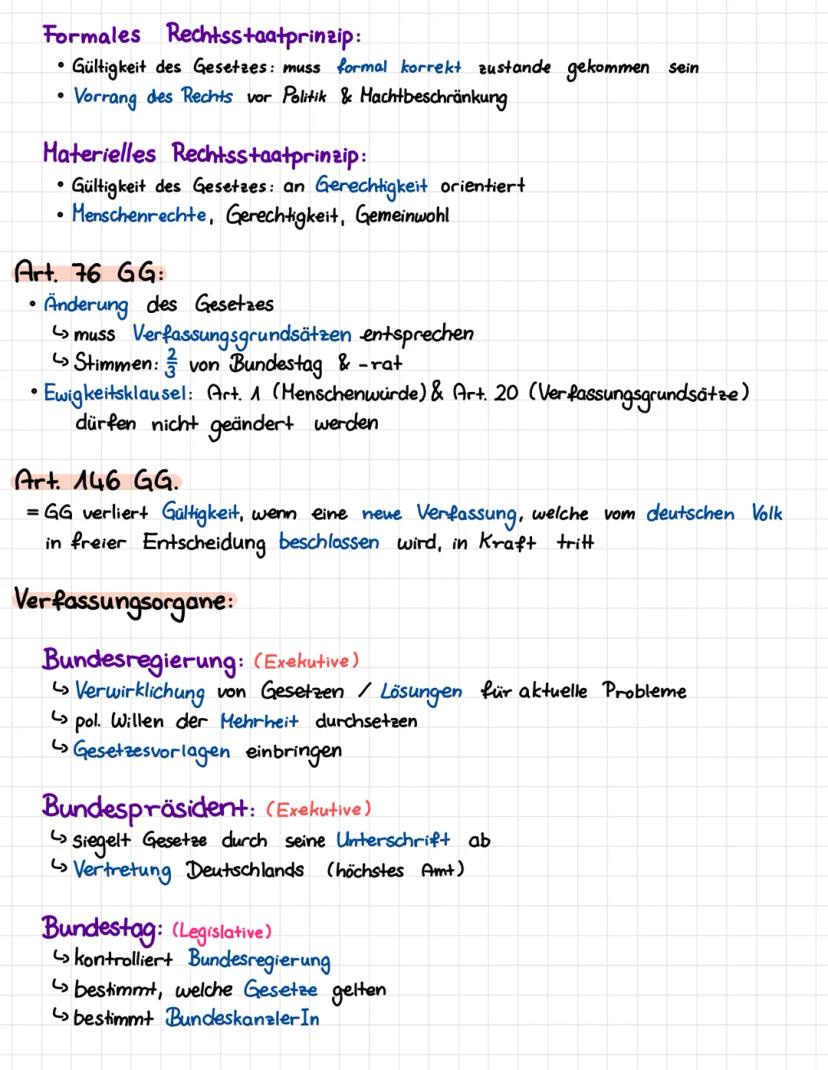 Formales Rechtsstaatprinzip:
• Gültigkeit des Gesetzes: muss formal korrekt zustande gekommen sein
• Vorrang des Rechts vor Politik & Machtbeschränkung
Materielles Rechtsstaatprinzip:
• Gültigkeit des Gesetzes: an Gerechtigkeit orientiert
• Menschenrechte, Gerechtigkeit, Gemeinwohl
Art. 76 GG:
• Änderung des Gesetzes
↳ muss Verfassungsgrundsätzen entsprechen
↳ Stimmen: 2/3 von Bundestag & -rat
• Ewigkeitsklausel: Art. 1 (Menschenwürde) & Art. 20 (Verfassungsgrundsätze)
dürfen nicht geändert werden
Art. 146 GG.
= GG verliert Gültigkeit, wenn eine neue Verfassung, welche vom deutschen Volk
in freier Entscheidung beschlossen wird, in Kraft tritt
Verfassungsorgane:
Bundesregierung: (Exekutive)
↳ Verwirklichung von Gesetzen / Lösungen für aktuelle Probleme
↳ pol. Willen der Mehrheit durchsetzen
↳ Gesetzesvorlagen einbringen
Bundespräsident: (Exekutive)
↳ siegelt Gesetze durch seine Unterschrift ab
↳ Vertretung Deutschlands (höchstes Amt)
Bundestag: (Legislative)
↳ kontrolliert Bundesregierung
↳ bestimmt, welche Gesetze gelten
↳ bestimmt BundeskanzlerIn